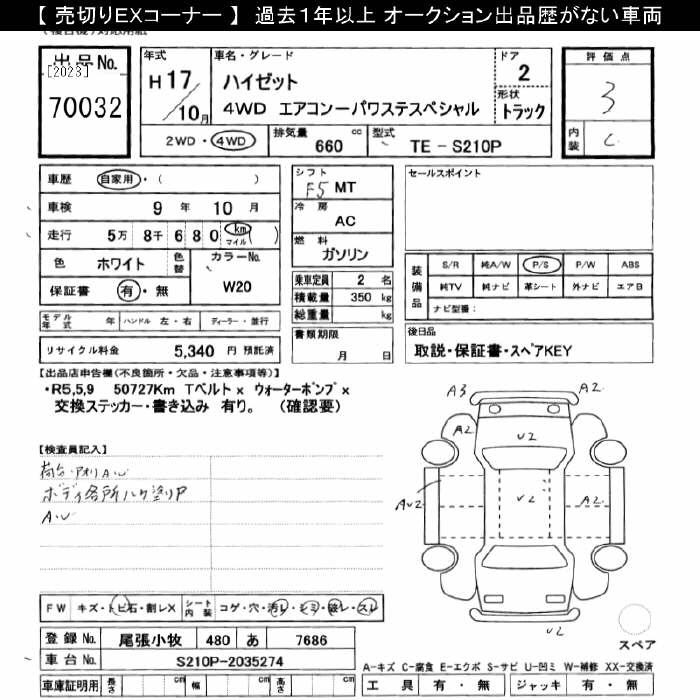 【 売切りEXコーナー 】 過去1年以上 オークション出品歴がない車両
出品No.
[2023]
70032
年式
H 17
10月
車名・グレード
ハイゼット
4WD エアコンーパワステスペシャル
ドア
2
形状
トラック
評価点
3
内装
C
2WD・4WD
排気量 660 cc
型式 TE-S210P
車歴 自家用・( )
車検 9年 10月
走行 5万 8千 6 8 0 km マイル
色 ホワイト
色替
カラーNo. W20
保証書 有・無
モデル年式 年 ハンドル 左・右 ディーラー・並行
リサイクル料金 5,340 円 預託済
シフト
F5 MT
冷房
AC
燃料
ガソリン
乗車定員 2 名
積載量 350 kg
総重量 kg
書類期限
月 日
セールスポイント
装備品
S/R 純A/W P/S P/W ABS
純TV 純ナビ 革シート 外ナビ エアB
ナビ型番:
後日品
取説・保証書・スペアKEY
【出品店申告欄(不良箇所・欠品・注意事項等)】
・R5,5,9 50727Km Tベルトx ウォーターポンプx
交換ステッカー・書き込み 有り。 (確認要)
【検査員記入】
荷台・アオリAU
ボディ各所ハケ塗りP
AU
A3
A2
A2
A2
U2
AU2
U2
A2
U2
スペア
FW キズ・トビ石・割レX
シート内装 コゲ・穴・汚レ・シミ・破レ・スレ
登録No. 尾張小牧 480 あ 7686
車台No. S210P-2035274
車庫証明用 長さ cm 幅 cm 高さ cm
A-キズ C-腐食 E-エクボ S-サビ U-凹ミ W-補修 XX-交換済
工具 有・無 ジャッキ 有・無